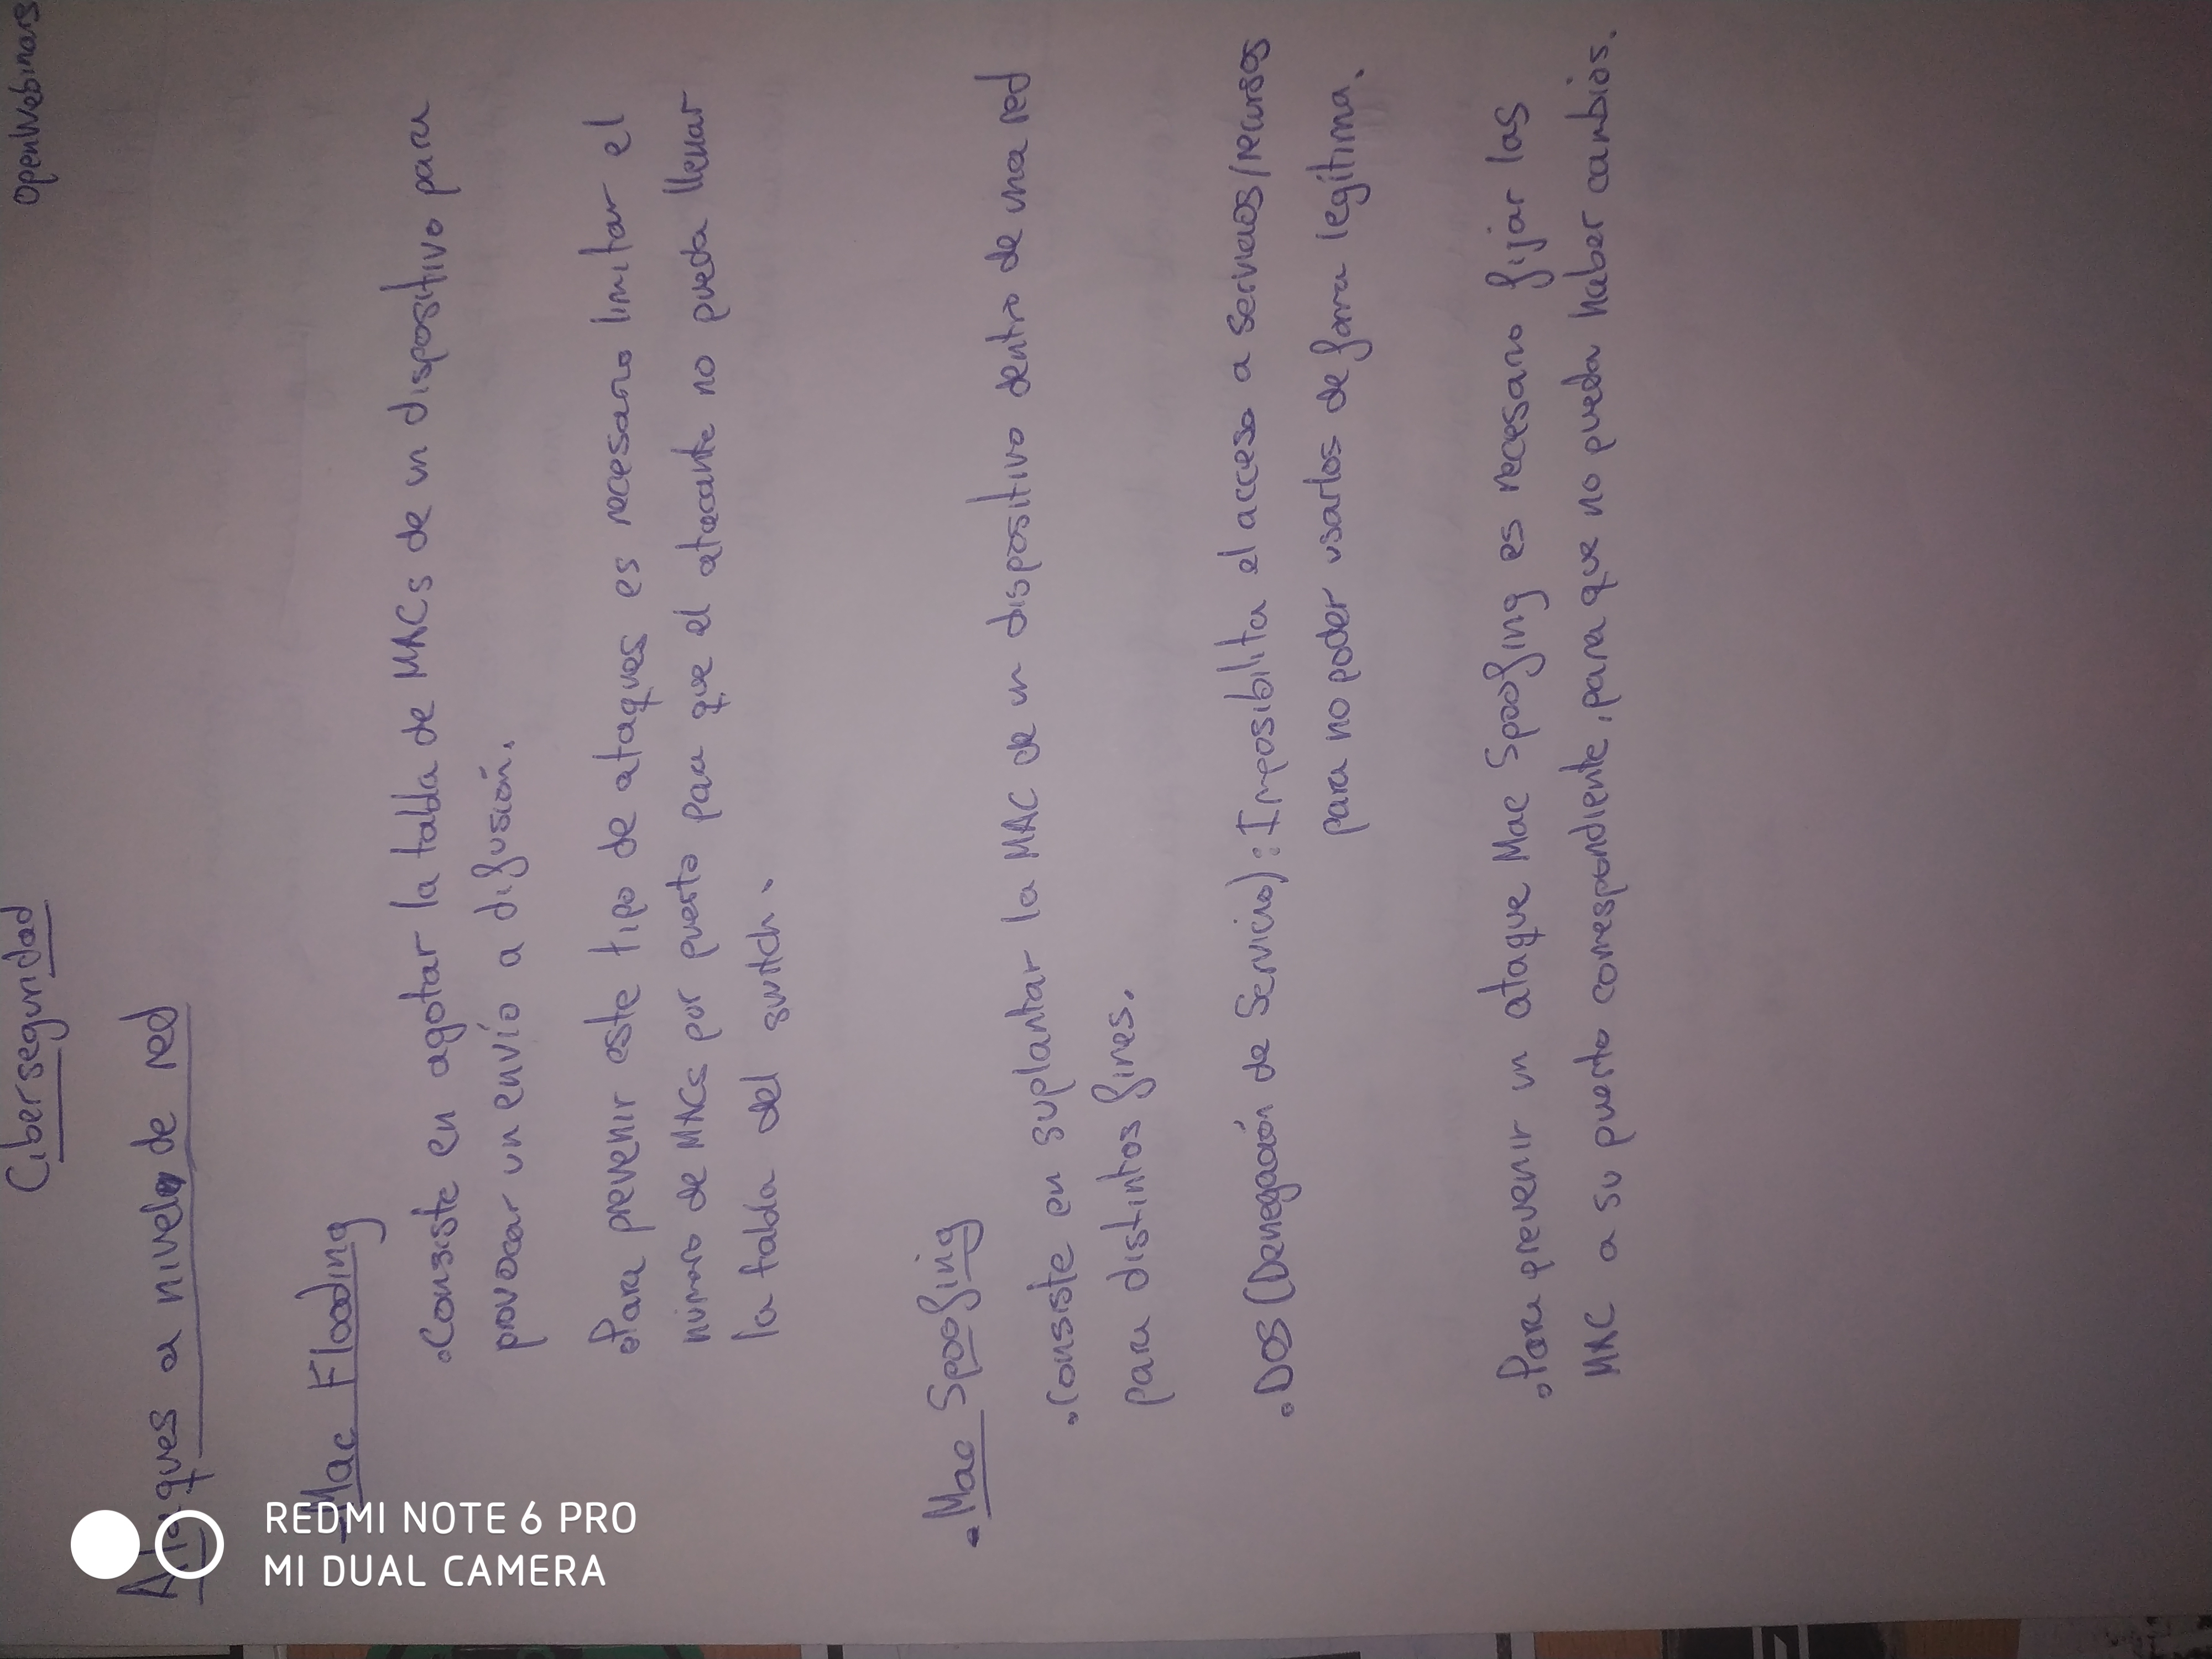 OpenWebinars
Ciberseguridad
Ataques a nivel de red
- Mac Flooding
• Consiste en agotar la tabla de MACs de un dispositivo para
provocar un envío a difusión.
• Para prevenir este tipo de ataques es necesario limitar el
número de MACs por puerto para que el atacante no pueda llenar
la tabla del switch.
- Mac Spoofing
• Consiste en suplantar la MAC de un dispositivo dentro de una red
para distintos fines.
• DOS (Denegación de Servicio): Imposibilita el acceso a servicios/recursos
para no poder usarlos de forma legítima.
• Para prevenir un ataque Mac Spoofing es necesario fijar las
MAC a su puerto correspondiente, para que no pueda haber cambios.
REDMI NOTE 6 PRO
MI DUAL CAMERA